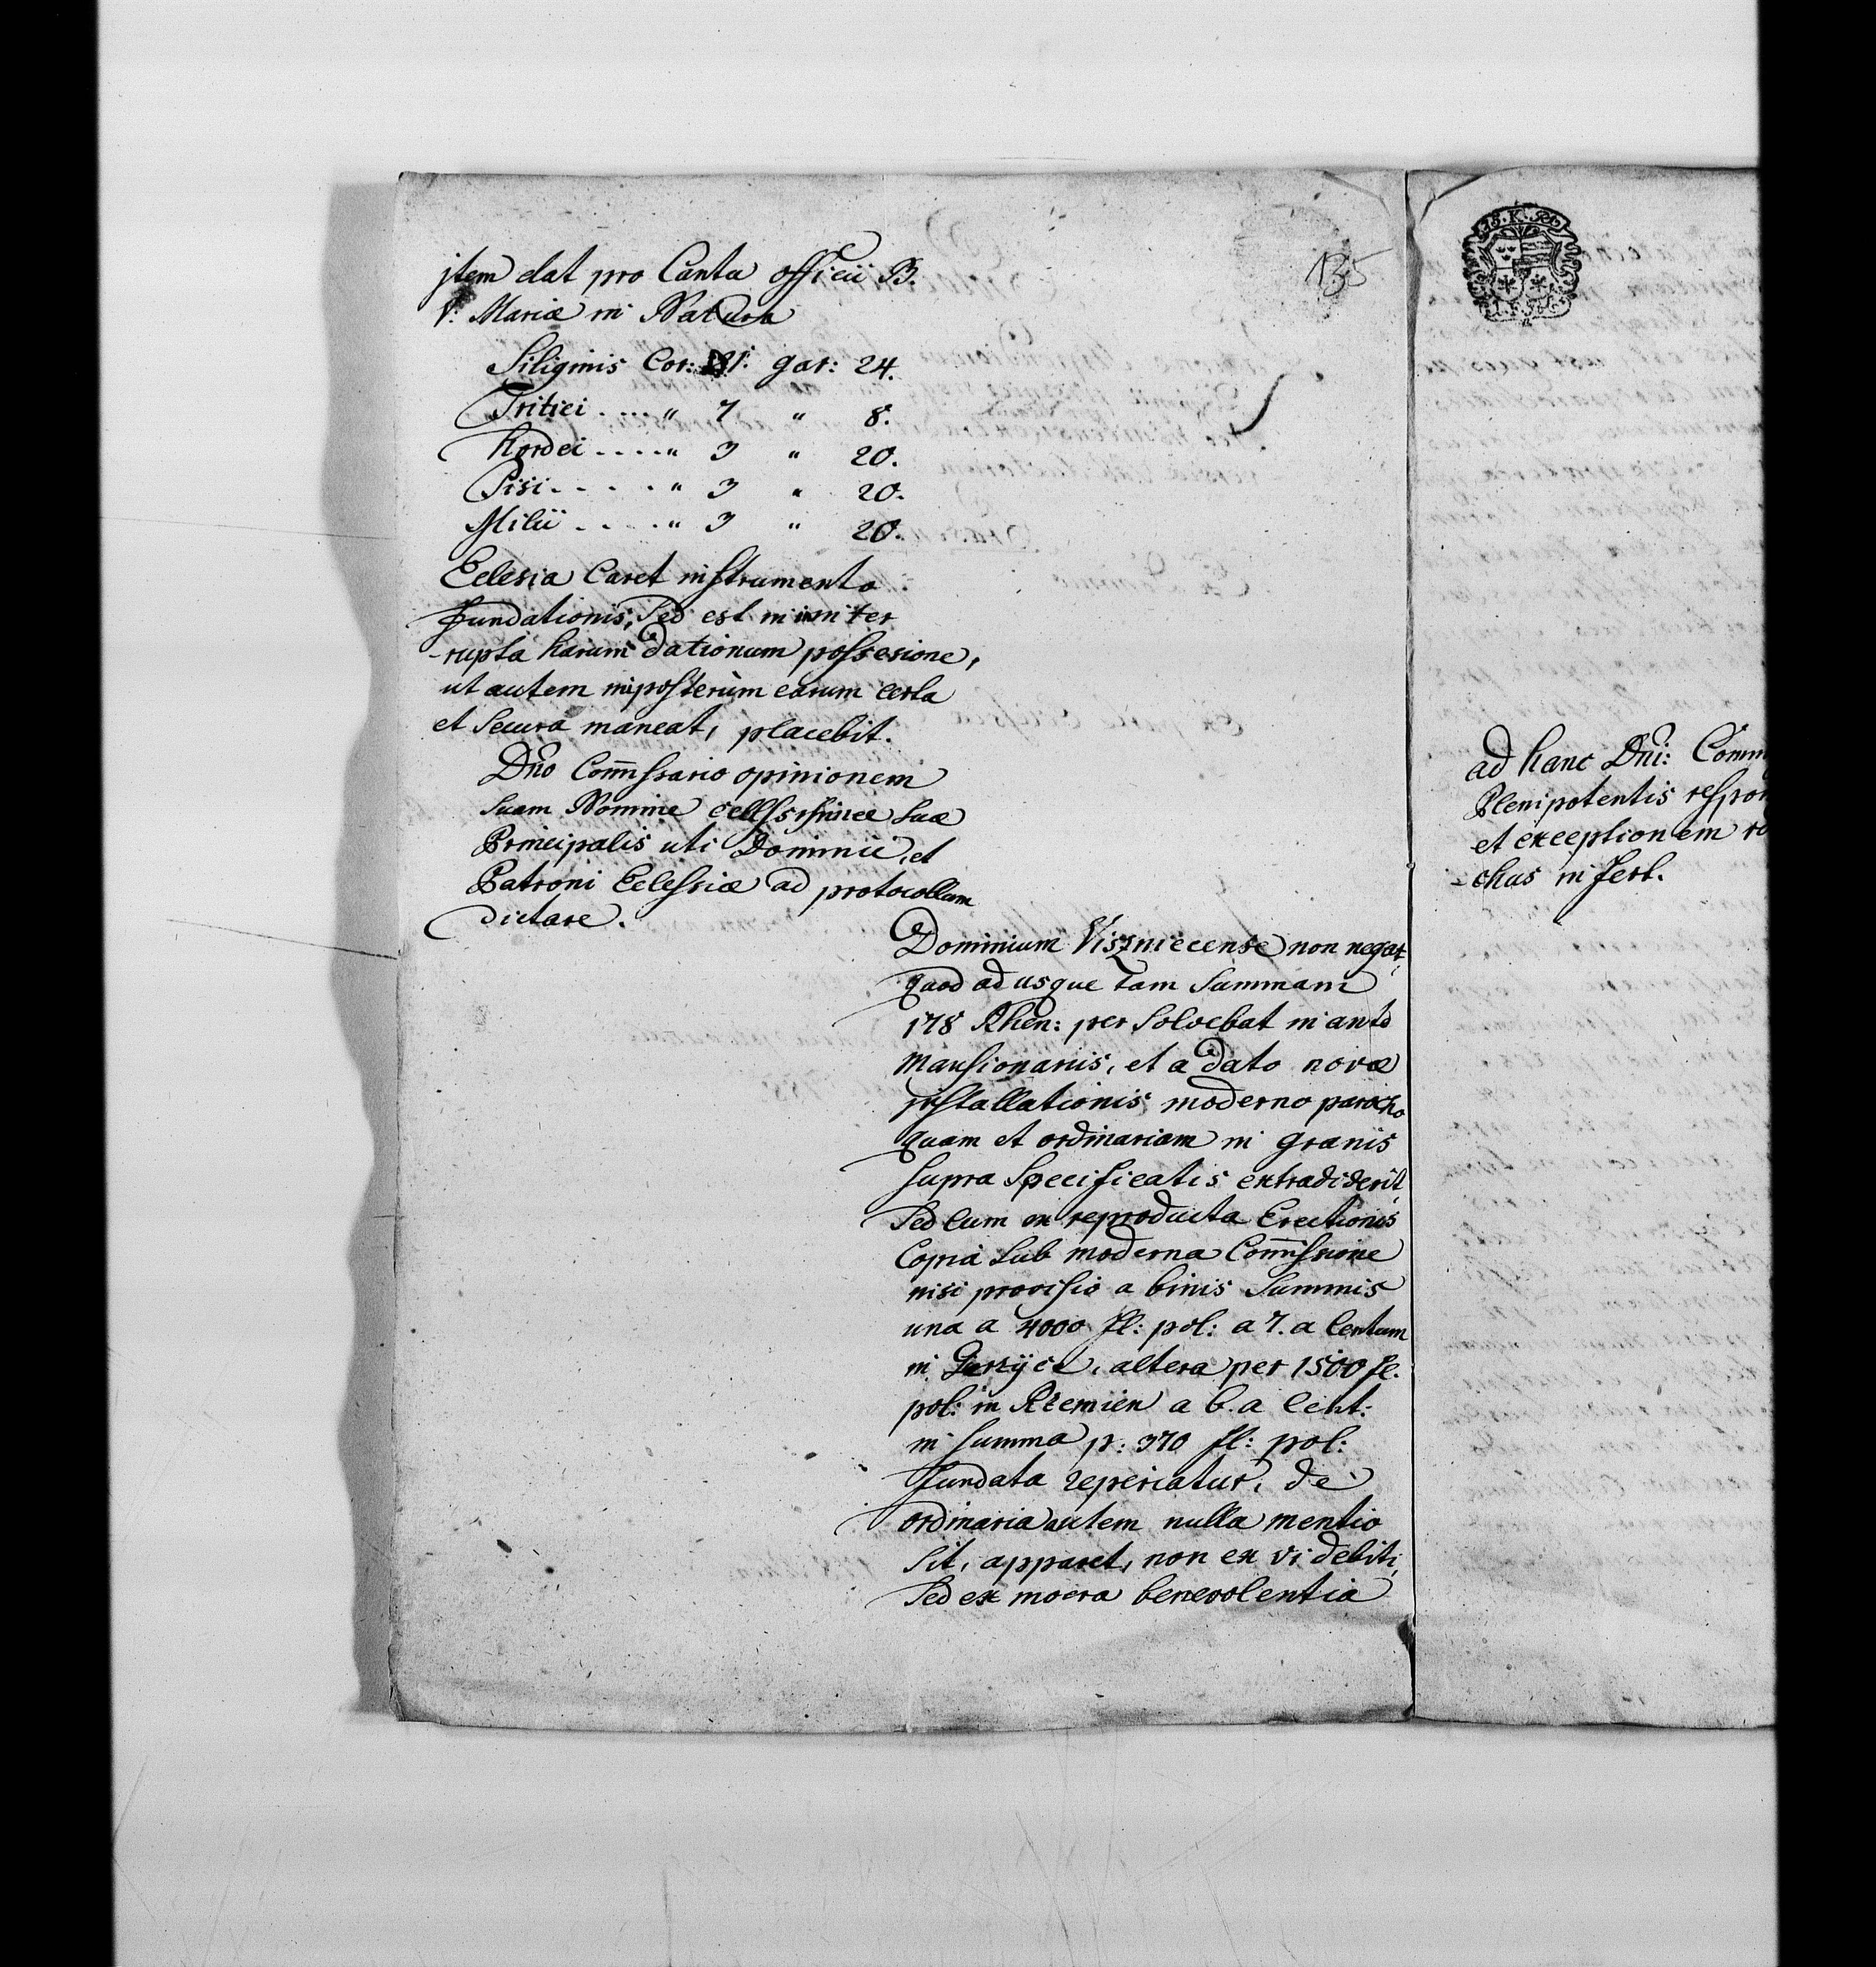 135
jtem dat pro Cantu officii B.
V. Mariæ in Natura
Siliginis Cor: 21. gar: 24.
Tritici .... " 7 " 8.
hordei .... " 3 " 20.
Pisi .... " 3 " 20.
Milii .... " 3 " 20.
Eclesia Caret instrumento
fundationis, Sed est in inter
-rupta harum dationum possesione,
ut autem inposterùm earum certa
et Secura maneat, placebit.
Dño Com̄issario opinionem
Suam Nomine Suæ
Principalis uti Dominii, et
Patroni Eclesiæ ad protocollum
dictare.
Dominium Viszniecense non negat,
quod ad usque Tam Summam
178 Rhen: per Solvebat in
Mansionariis, et a dato novæ
jnstallationis moderno parocho
quam et ordinariam in granis
Supra Specificatis extradiderit,
Sed Cum ex reproducta Erectionis
Copia Sub moderna Com̄issione
nisi provisio a binis Summis
una a 4000 fl: pol: a 7. a Centum
in altera per 1500 fl.
pol: in Rzemien a 6. a Cent:
in Summa p: 370 fl: pol:
fundata reperiatur, de
ordinaria autem nulla mentio
Sit, apparet, non ex vi debiti,
Sed ex moera benevolentia
ad hanc Dni: Comm
Plenipotentis respon
et exceptionem
-chus inSert.